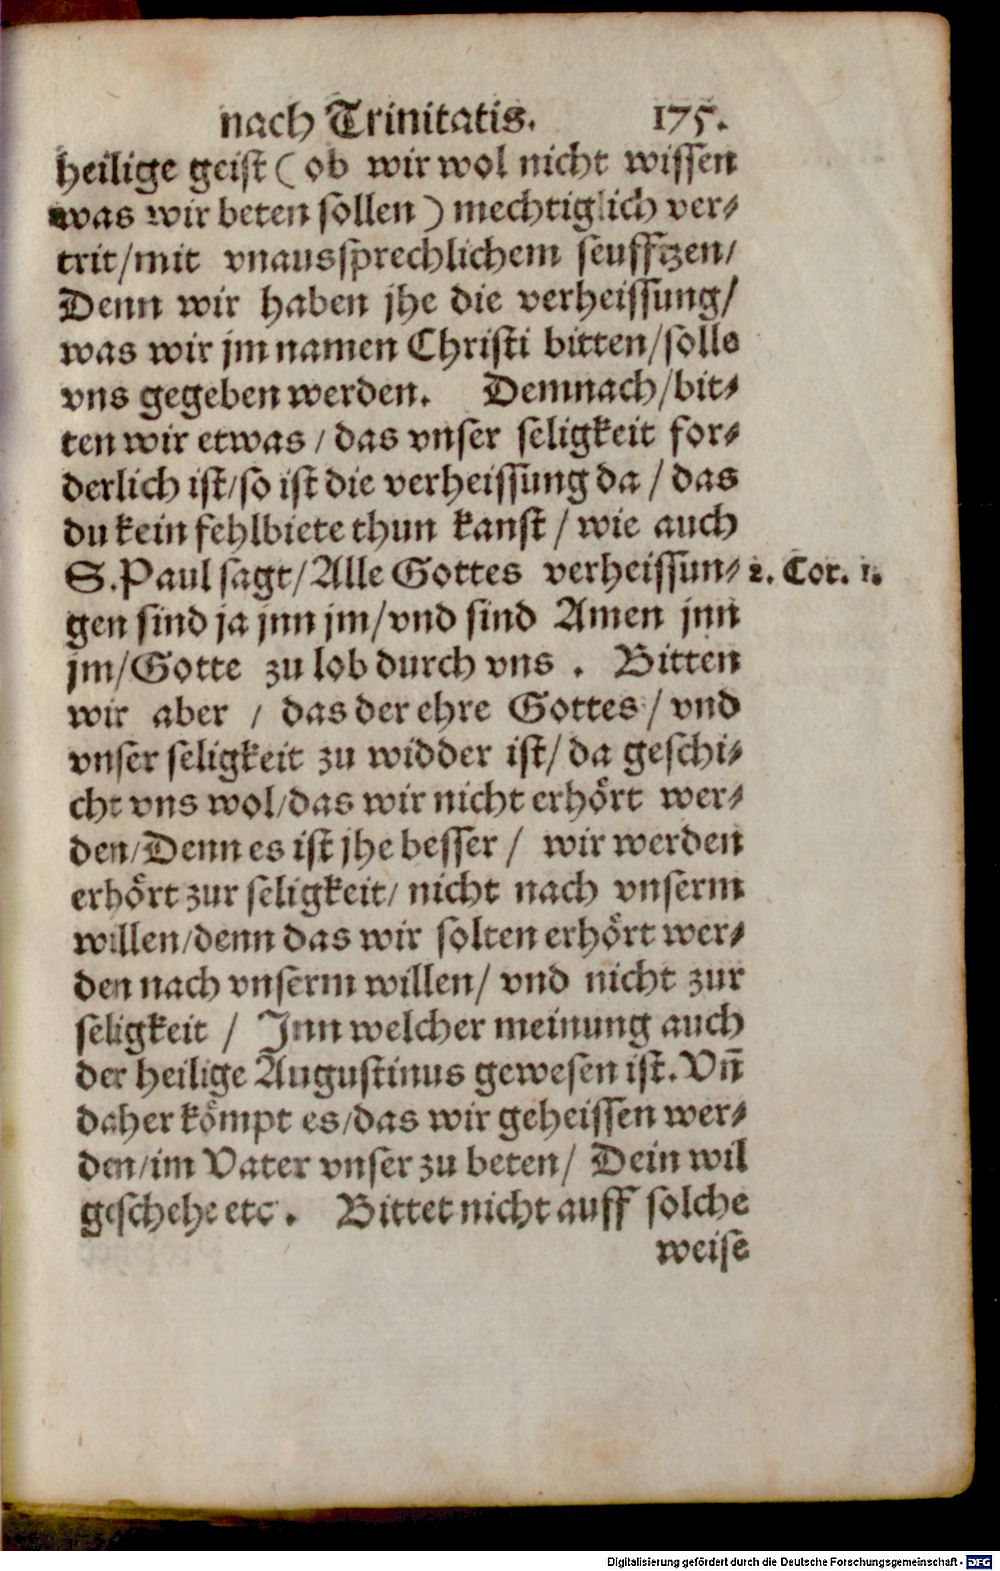 nach Trinitatis. 175.
heilige geist ( ob wir wol nicht wissen
was wir beten sollen ) mechtiglich ver-
trit/mit vnaussprechlichem seufftzen/
Denn wir haben jhe die verheissung/
was wir jm namen Christi bitten/solle
vns gegeben werden. Demnach/bit-
ten wir etwas / das vnser seligkeit for-
derlich ist/so ist die verheissung da / das
du kein fehlbiete thun kanst / wie auch
S. Paul sagt/Alle Gottes verheissun- 2. Cor. 1.
gen sind ja jnn jm/vnd sind Amen jnn
jm/Gotte zu lob durch vns . Bitten
wir aber / das der ehre Gottes/ vnd
vnser seligkeit zu widder ist/ da geschi-
cht vns wol/das wir nicht erhört wer-
den/Denn es ist jhe besser / wir werden
erhört zur seligkeit/ nicht nach vnserm
willen/denn das wir solten erhört wer-
den nach vnserm willen/ vnd nicht zur
seligkeit / Jnn welcher meinung auch
der heilige Augustinus gewesen ist. Vñ
daher kömpt es/das wir geheissen wer-
den/im Vater vnser zu beten/ Dein wil
geschehe etc . Bittet nicht auff solche
weise
Digitalisierung gefördert durch die Deutsche Forschungsgemeinschaft - DFG